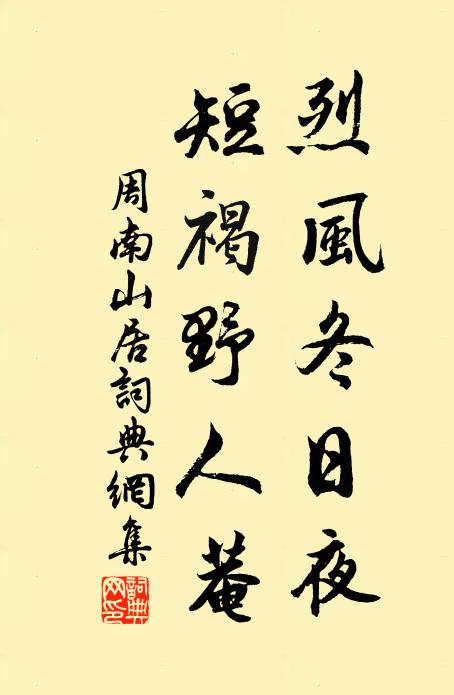 烈風冬日夜
短褐野人菴
周南山居詞典網集
詞典網印